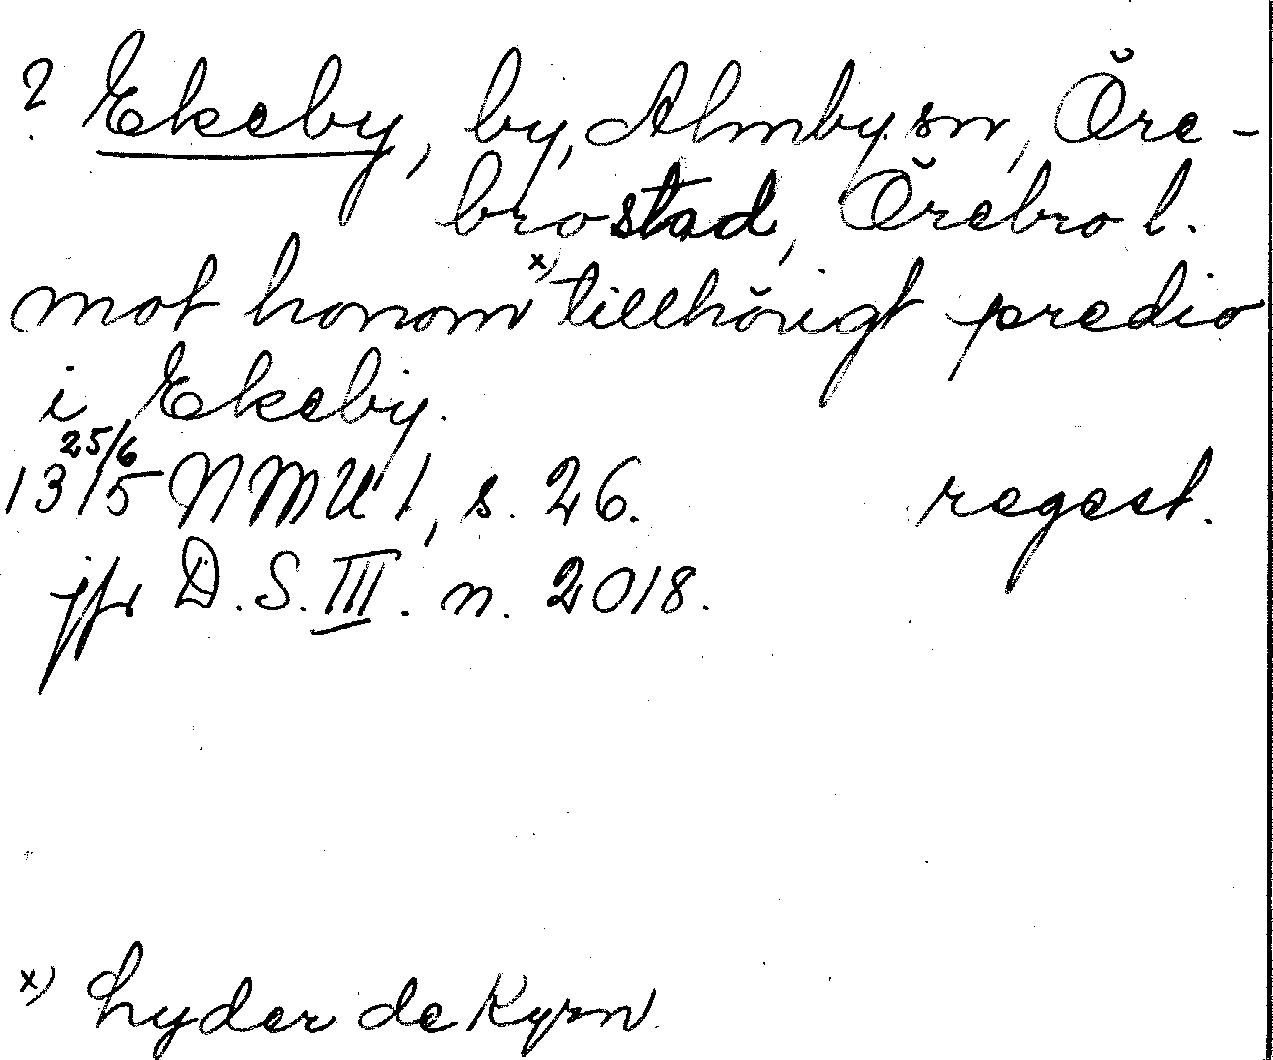 ? Ekeby, by, Almby sn, Öre-
bro stad, Örebro l.
mot honom x) tillhörigt predio
i Ekeby.
13 25/6 15 NMU 1, s. 26. regest.
jfr D.S. III. n. 2018.
x) Lyder de Kyrn